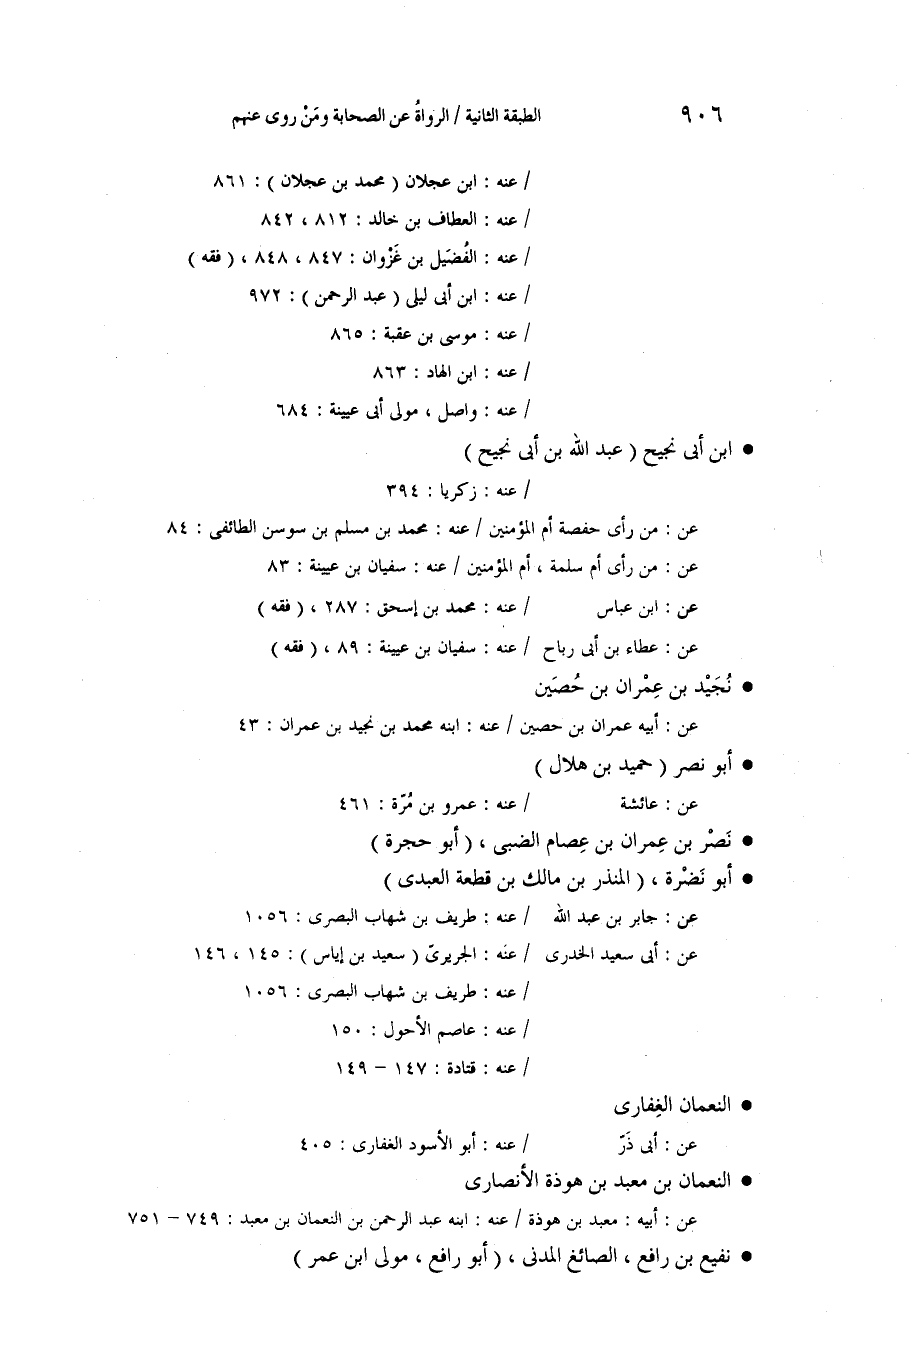 ٩٠٦ الطبقة الثانية / الرواةُ عن الصحابة ومَنْ روى عنهم
/ عنه : ابن عجلان ( محمد بن عجلان ) : ٨٦١
/ عنه : العطاف بن خالد : ٨١٢ ، ٨٤٢
/ عنه : الفُضَيل بن غَزْوان : ٨٤٧ ، ٨٤٨ ، ( فقه )
/ عنه : ابن أبى ليلى ( عبد الرحمن ) : ٩٧٢
/ عنه : موسى بن عقبة : ٨٦٥
/ عنه : ابن الهاد : ٨٦٣
/ عنه : واصل ، مولى أبى عيينة : ٦٨٤
● ابن أبى نجيح ( عبد الله بن أبى نجيح )
/ عنه : زكريا : ٣٩٤
عن : من رأى حفصة أم المؤمنين / عنه : محمد بن مسلم بن سوسن الطائفى : ٨٤
عن : من رأى أم سلمة ، أم المؤمنين / عنه : سفيان بن عيينة : ٨٣
عن : ابن عباس / عنه : محمد بن إسحق : ٢٨٧ ، ( فقه )
عن : عطاء بن أبى رباح / عنه : سفيان بن عيينة : ٨٩ ، ( فقه )
● نُجَيْد بن عِمْران بن حُصَين
عن : أبيه عمران بن حصين / عنه : ابنه محمد بن نجيد بن عمران : ٤٣
● أبو نصر ( حميد بن هلال )
عن : عائشة / عنه : عمرو بن مُرّة : ٤٦١
● نَصْر بن عِمران بن عِصام الضبى ، ( أبو حجرة )
● أبو نَضْرة ، ( المنذر بن مالك بن قطعة العبدى )
عن : جابر بن عبد الله / عنه : طريف بن شهاب البصرى : ١٠٥٦
عن : أبى سعيد الخدرى / عنَه : الجريرىّ ( سعيد بن إياس ) : ١٤٥ ، ١٤٦
/ عنه : طريف بن شهاب البصرى : ١٠٥٦
/ عنه : عاصم الأحول : ١٥٠
/ عنه : قتادة : ١٤٧ – ١٤٩
● النعمان الغِفارى
عن : أبى ذَرّ / عنه : أبو الأسود الغفارى : ٤٠٥
● النعمان بن معبد بن هوذة الأنصارى
عن : أبيه : معبد بن هوذة / عنه : ابنه عبد الرحمن بن النعمان بن معبد : ٧٤٩ – ٧٥١
● نفيع بن رافع ، الصائغ المدنى ، ( أبو رافع ، مولى ابن عمر )